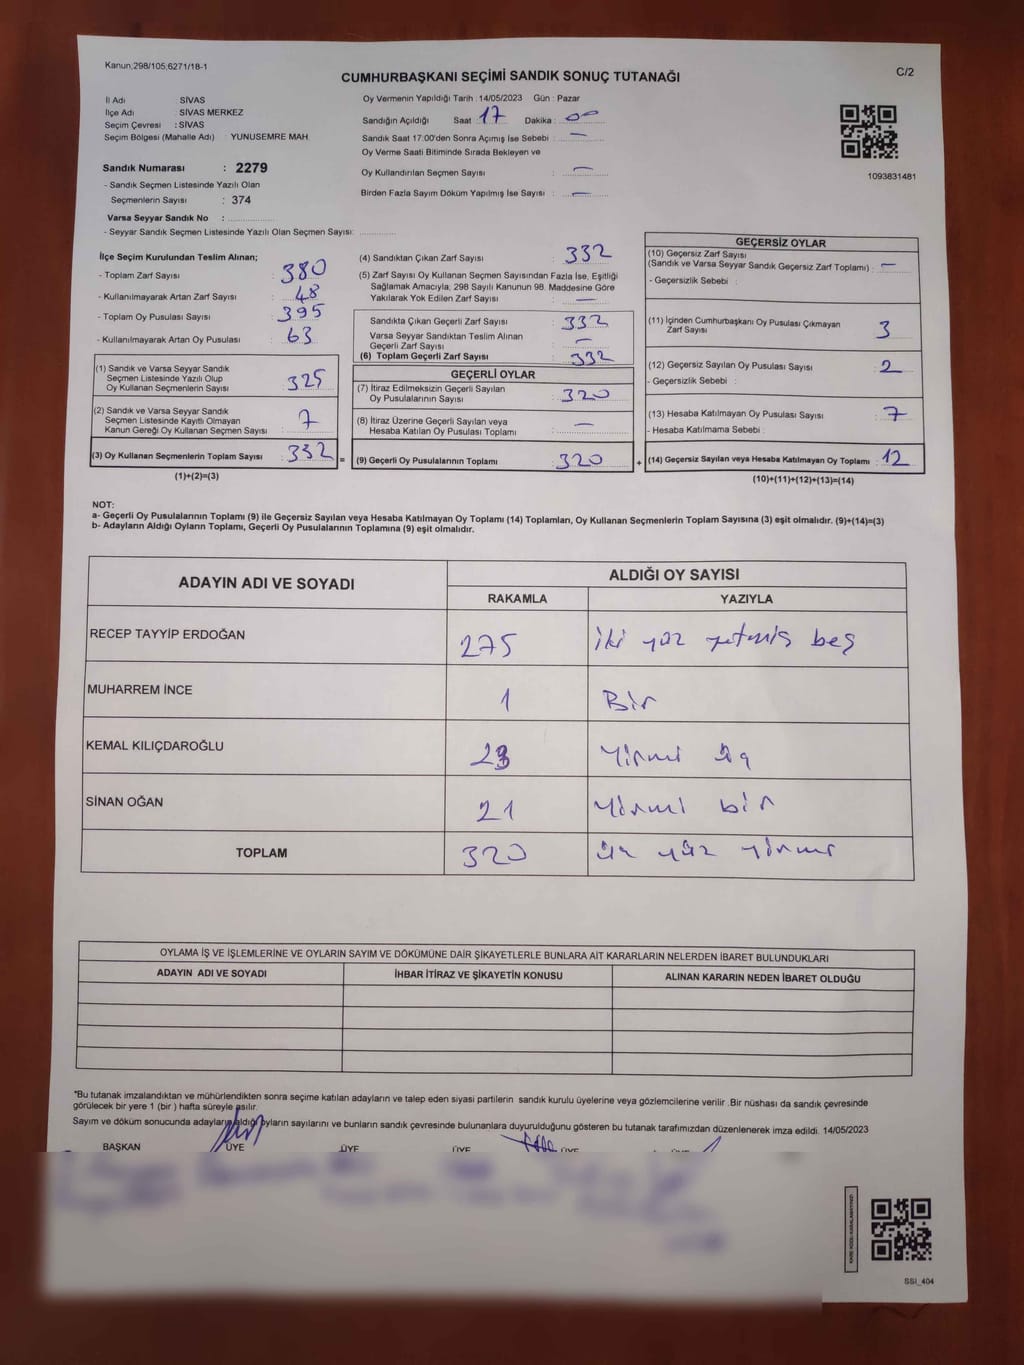 Kanun;298/105;6271/18-1
CUMHURBAŞKANI SEÇİMİ SANDIK SONUÇ TUTANAĞI
C/2
İl Adı : SİVAS
İlçe Adı : SİVAS MERKEZ
Seçim Çevresi : SİVAS
Seçim Bölgesi (Mahalle Adı) : YUNUSEMRE MAH.
Sandık Numarası : 2279
- Sandık Seçmen Listesinde Yazılı Olan
Seçmenlerin Sayısı : 374
Varsa Seyyar Sandık No :
- Seyyar Sandık Seçmen Listesinde Yazılı Olan Seçmen Sayısı:
Oy Vermenin Yapıldığı Tarih : 14/05/2023 Gün : Pazar
Sandığın Açıldığı Saat : 17 Dakika : 00
Sandık Saat 17:00'den Sonra Açımış İse Sebebi : —
Oy Verme Saati Bitiminde Sırada Bekleyen ve
Oy Kullandırılan Seçmen Sayısı : —
Birden Fazla Sayım Döküm Yapılmış İse Sayısı : —
1093831481
İlçe Seçim Kurulundan Teslim Alınan;
- Toplam Zarf Sayısı : 380
- Kullanılmayarak Artan Zarf Sayısı : 48
- Toplam Oy Pusulası Sayısı : 395
- Kullanılmayarak Artan Oy Pusulası : 63
(1) Sandık ve Varsa Seyyar Sandık
Seçmen Listesinde Yazılı Olup
Oy Kullanan Seçmenlerin Sayısı : 325
(2) Sandık ve Varsa Seyyar Sandık
Seçmen Listesinde Kayıtlı Olmayan
Kanun Gereği Oy Kullanan Seçmen Sayısı : 7
(3) Oy Kullanan Seçmenlerin Toplam Sayısı : 332
=
(1)+(2)=(3)
(4) Sandıktan Çıkan Zarf Sayısı : 332
(5) Zarf Sayısı Oy Kullanan Seçmen Sayısından Fazla İse, Eşitliği
Sağlamak Amacıyla, 298 Sayılı Kanunun 98. Maddesine Göre
Yakılarak Yok Edilen Zarf Sayısı : —
Sandıkta Çıkan Geçerli Zarf Sayısı : 332
Varsa Seyyar Sandıktan Teslim Alınan
Geçerli Zarf Sayısı : —
(6) Toplam Geçerli Zarf Sayısı : 332
GEÇERLİ OYLAR
(7) İtiraz Edilmeksizin Geçerli Sayılan
Oy Pusulalarının Sayısı : 320
(8) İtiraz Üzerine Geçerli Sayılan veya
Hesaba Katılan Oy Pusulası Toplamı : —
(9) Geçerli Oy Pusulalarının Toplamı : 320
+
GEÇERSİZ OYLAR
(10) Geçersiz Zarf Sayısı
(Sandık ve Varsa Seyyar Sandık Geçersiz Zarf Toplamı) : —
- Geçersizlik Sebebi :
(11) İçinden Cumhurbaşkanı Oy Pusulası Çıkmayan
Zarf Sayısı 3
(12) Geçersiz Sayılan Oy Pusulası Sayısı : 2
- Geçersizlik Sebebi :
(13) Hesaba Katılmayan Oy Pusulası Sayısı : 7
- Hesaba Katılmama Sebebi :
(14) Geçersiz Sayılan veya Hesaba Katılmayan Oy Toplamı : 12
(10)+(11)+(12)+(13)=(14)
NOT:
a- Geçerli Oy Pusulalarının Toplamı (9) ile Geçersiz Sayılan veya Hesaba Katılmayan Oy Toplamı (14) Toplamları, Oy Kullanan Seçmenlerin Toplam Sayısına (3) eşit olmalıdır. (9)+(14)=(3)
b- Adayların Aldığı Oyların Toplamı, Geçerli Oy Pusulalarının Toplamına (9) eşit olmalıdır.
ADAYIN ADI VE SOYADI
ALDIĞI OY SAYISI
RAKAMLA YAZIYLA
RECEP TAYYİP ERDOĞAN 275 iki yüz yetmiş beş
MUHARREM İNCE 1 Bir
KEMAL KILIÇDAROĞLU 23 Yirmi üç
SİNAN OĞAN 21 Yirmi bir
TOPLAM 320 üç yüz yirmi
OYLAMA İŞ VE İŞLEMLERİNE VE OYLARIN SAYIM VE DÖKÜMÜNE DAİR ŞİKAYETLERLE BUNLARA AİT KARARLARIN NELERDEN İBARET BULUNDUKLARI
ADAYIN ADI VE SOYADI İHBAR İTİRAZ VE ŞİKAYETİN KONUSU ALINAN KARARIN NEDEN İBARET OLDUĞU
*Bu tutanak imzalandıktan ve mühürlendikten sonra seçime katılan adayların ve talep eden siyasi partilerin sandık kurulu üyelerine veya gözlemcilerine verilir. Bir nüshası da sandık çevresinde
görülecek bir yere 1 (bir ) hafta süreyle asılır.
Sayım ve döküm sonucunda adayların aldığı oyların sayılarını ve bunların sandık çevresinde bulunanlara duyurulduğunu gösteren bu tutanak tarafımızdan düzenlenerek imza edildi. 14/05/2023
BAŞKAN ÜYE ÜYE ÜYE ÜYE ÜYE
SSI_404